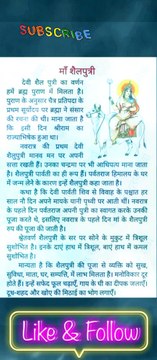 SUBSCRIBE
माँ शैलपुत्री
देवी शैल पुत्री का वर्णन
हमें ब्रह्म पुराण में मिलता है।
पुराण के अनुसार चैत्र प्रतिपदा के
प्रथम सूर्योदय पर ब्रह्मा ने संसार
की रचना की थी। माना जाता है
कि इसी दिन श्रीराम का
राज्याभिषेक हुआ था।
नवरात्र की प्रथम देवी
शैलपुत्री मानव मन पर अपनी
सत्ता रखती हैं। उनका चन्द्रमा पर भी आधिपत्य माना जाता
है। शैलपुत्री पार्वती का ही रूप हैं। पर्वतराज हिमालय के घर
में जन्म लेने के कारण इन्हें शैलपुत्री कहा जाता है।
कथा है कि देवी पार्वती शिव से विवाह के पश्चात हर
साल नौ दिन अपने मायके यानी पृथ्वी पर आती थीं। नवरात्र
के पहले दिन पर्वतराज अपनी पुत्री का स्वागत करके उनकी
पूजा करते थे, इसलिए नवरात्र के पहले दिन मां के शैलपुत्री
रूप की पूजा की जाती है।
श्वेतवर्ण शैलपुत्री के सर पर सोने के मुकुट में त्रिशूल
सुशोभित है। इनके दाएं हाथ में त्रिशूल, बाएं हाथ में कमल
सुशोभित है।
मान्यता है कि शैलपुत्री की पूजा से व्यक्ति को सुख,
सुविधा, माता, घर, सम्पत्ति, में लाभ मिलता है। मनोविकार दूर
होते हैं। इन्हें सफेद फूल चढ़ाएँ, गाय के घी का दीपक जलाएँ।
दूध-शहद और खोए की मिठाई का भोग लगाएँ।
Like & Follow